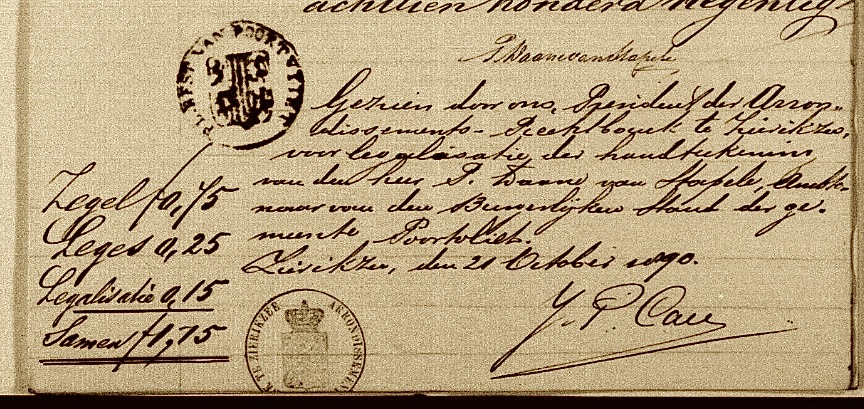 achttien honderd negentig
Gezien door ons, President der Arron-
dissements-Rechtbank te Zierikzee,
voor legalisatie der handteekening
van den heer P. Daane van Stapele, Ambte-
naar van den Burgerlijken Stand der ge-
meente Poortvliet.
Zierikzee, den 21 October 1890.
Zegel f 0,75
Leges 0,25
Legalisatie 0,15
Samen f 1,15
ARRONDISSEMENT
TE ZIERIKZEE